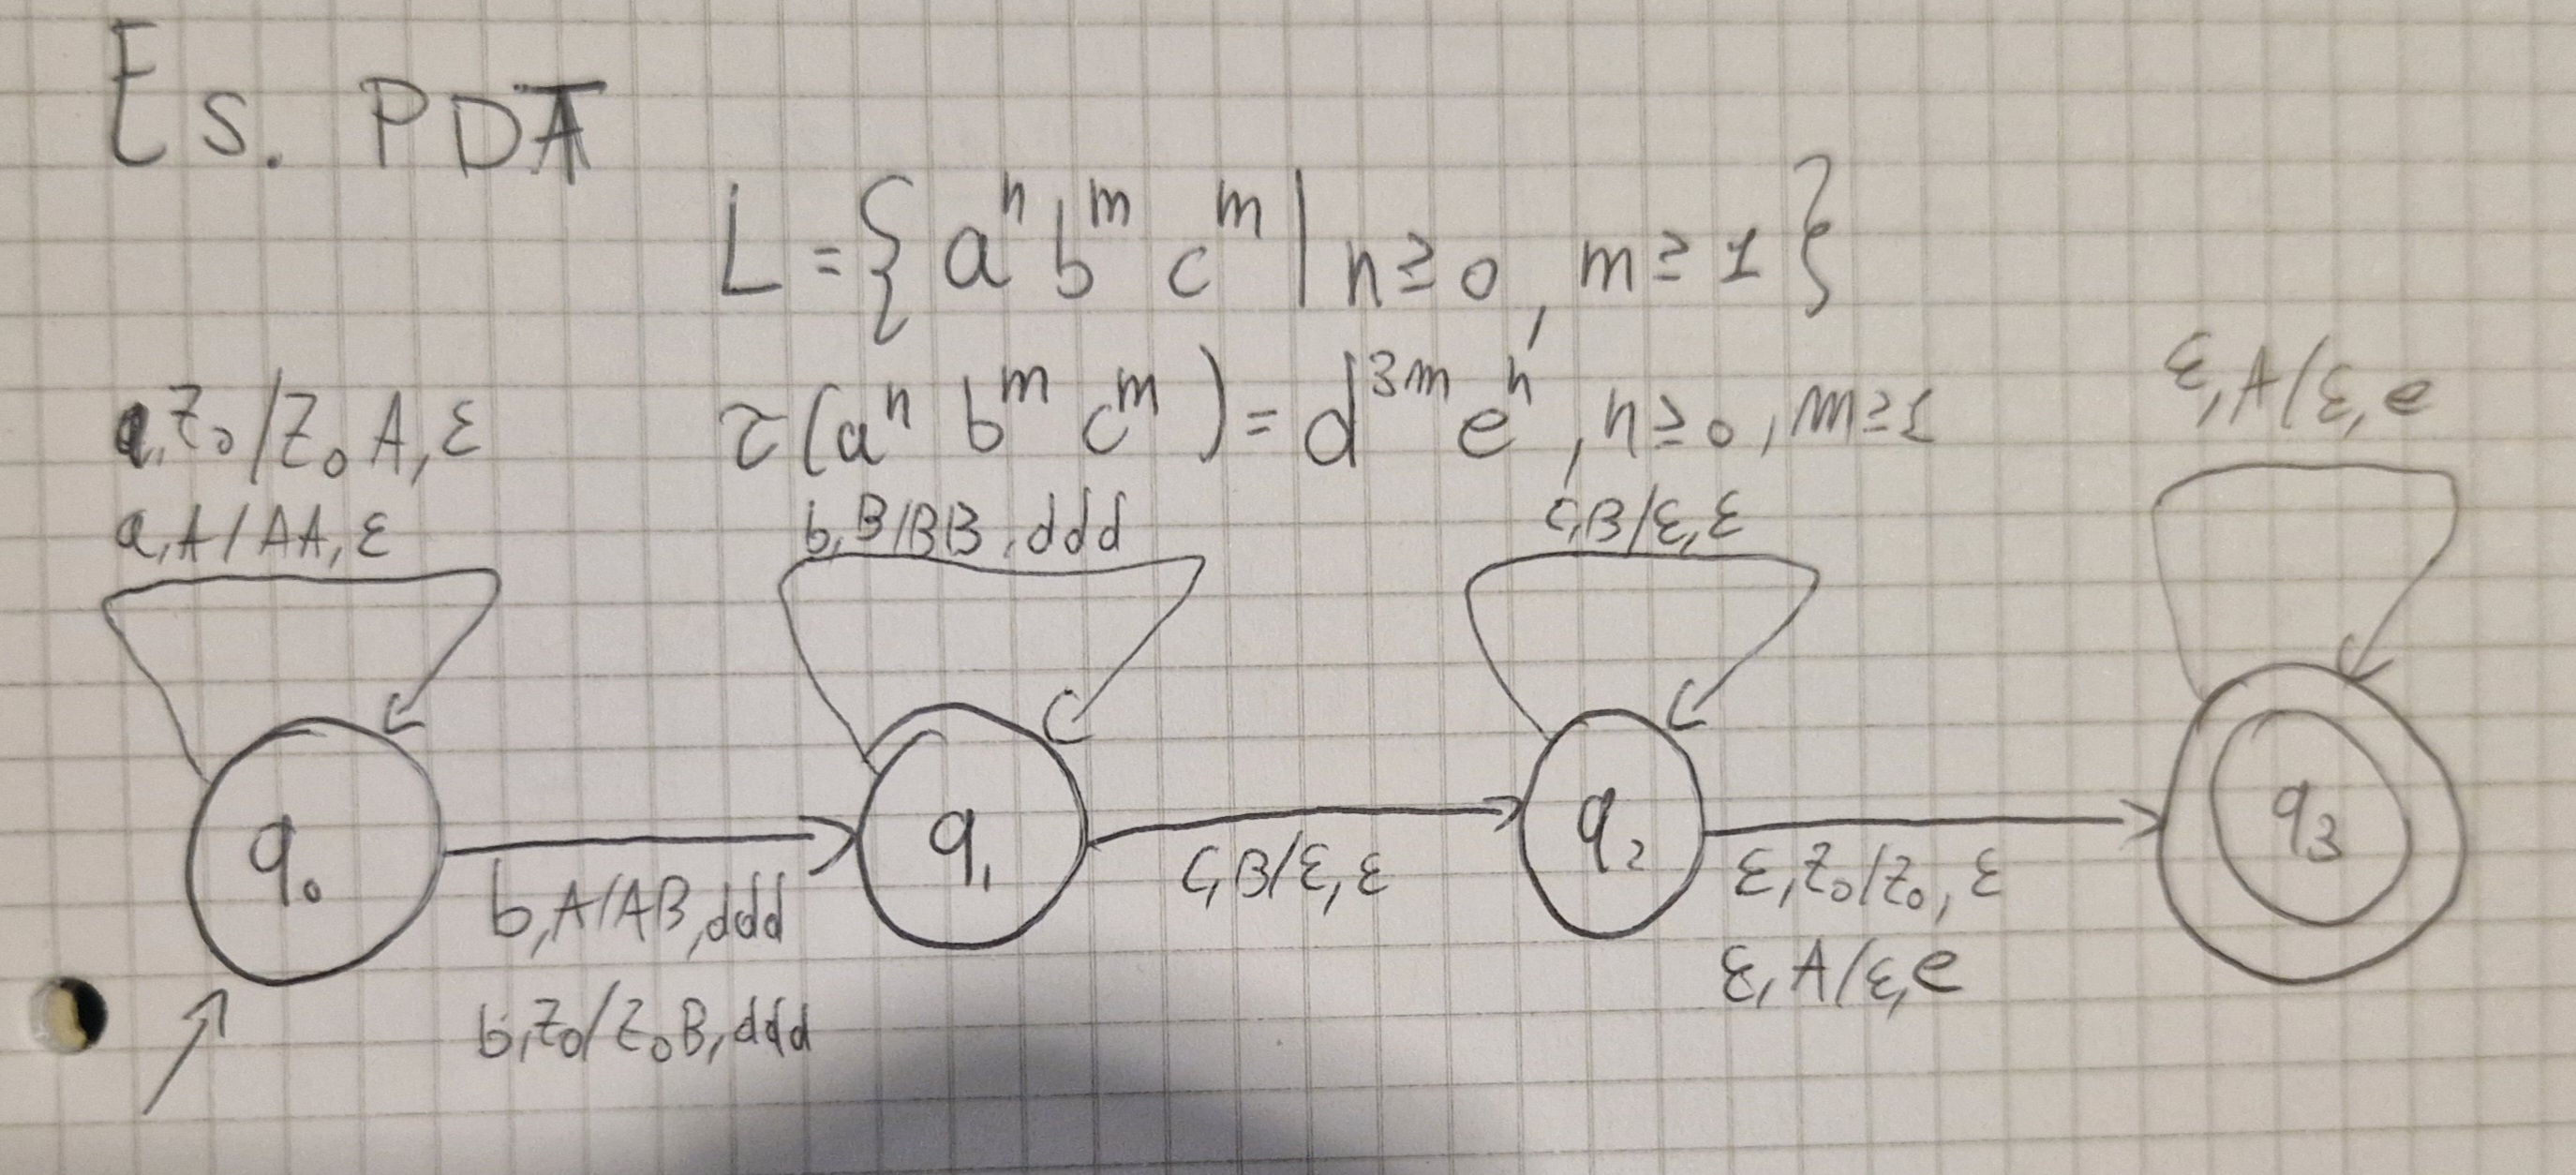 Es. PDT
L = { aⁿ bᵐ cᵐ | n ≥ 0, m ≥ 1 }
τ(aⁿ bᵐ cᵐ) = d³ᵐ eⁿ, n ≥ 0, m ≥ 1
a,Z₀/Z₀A,ε
a,A/AA,ε
b,B/BB,ddd
c,B/ε,ε
ε,A/ε,e
q₀
q₁
q₂
q₃
b,A/AB,ddd
b,Z₀/Z₀B,ddd
c,B/ε,ε
ε,Z₀/Z₀,ε
ε,A/ε,e